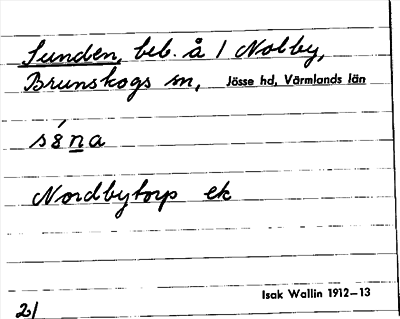 Sunden, beb. å 1 Nolby,
Brunskogs sn, Jösse hd, Värmlands län
Nordbytorp ek
Isak Wallin 1912–13
21